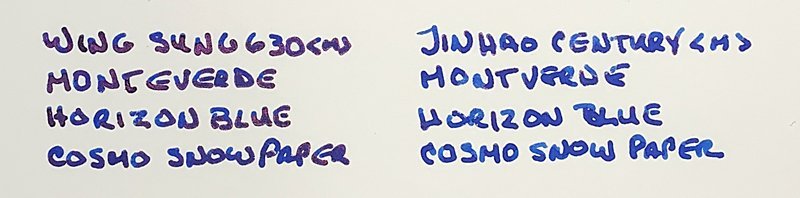 WING SUNG 630 <M>
MONTEVERDE
HORIZON BLUE
COSMO SNOW PAPER
JINHAO CENTURY <M>
MONTVERDE
HORIZON BLUE
COSMO SNOW PAPER